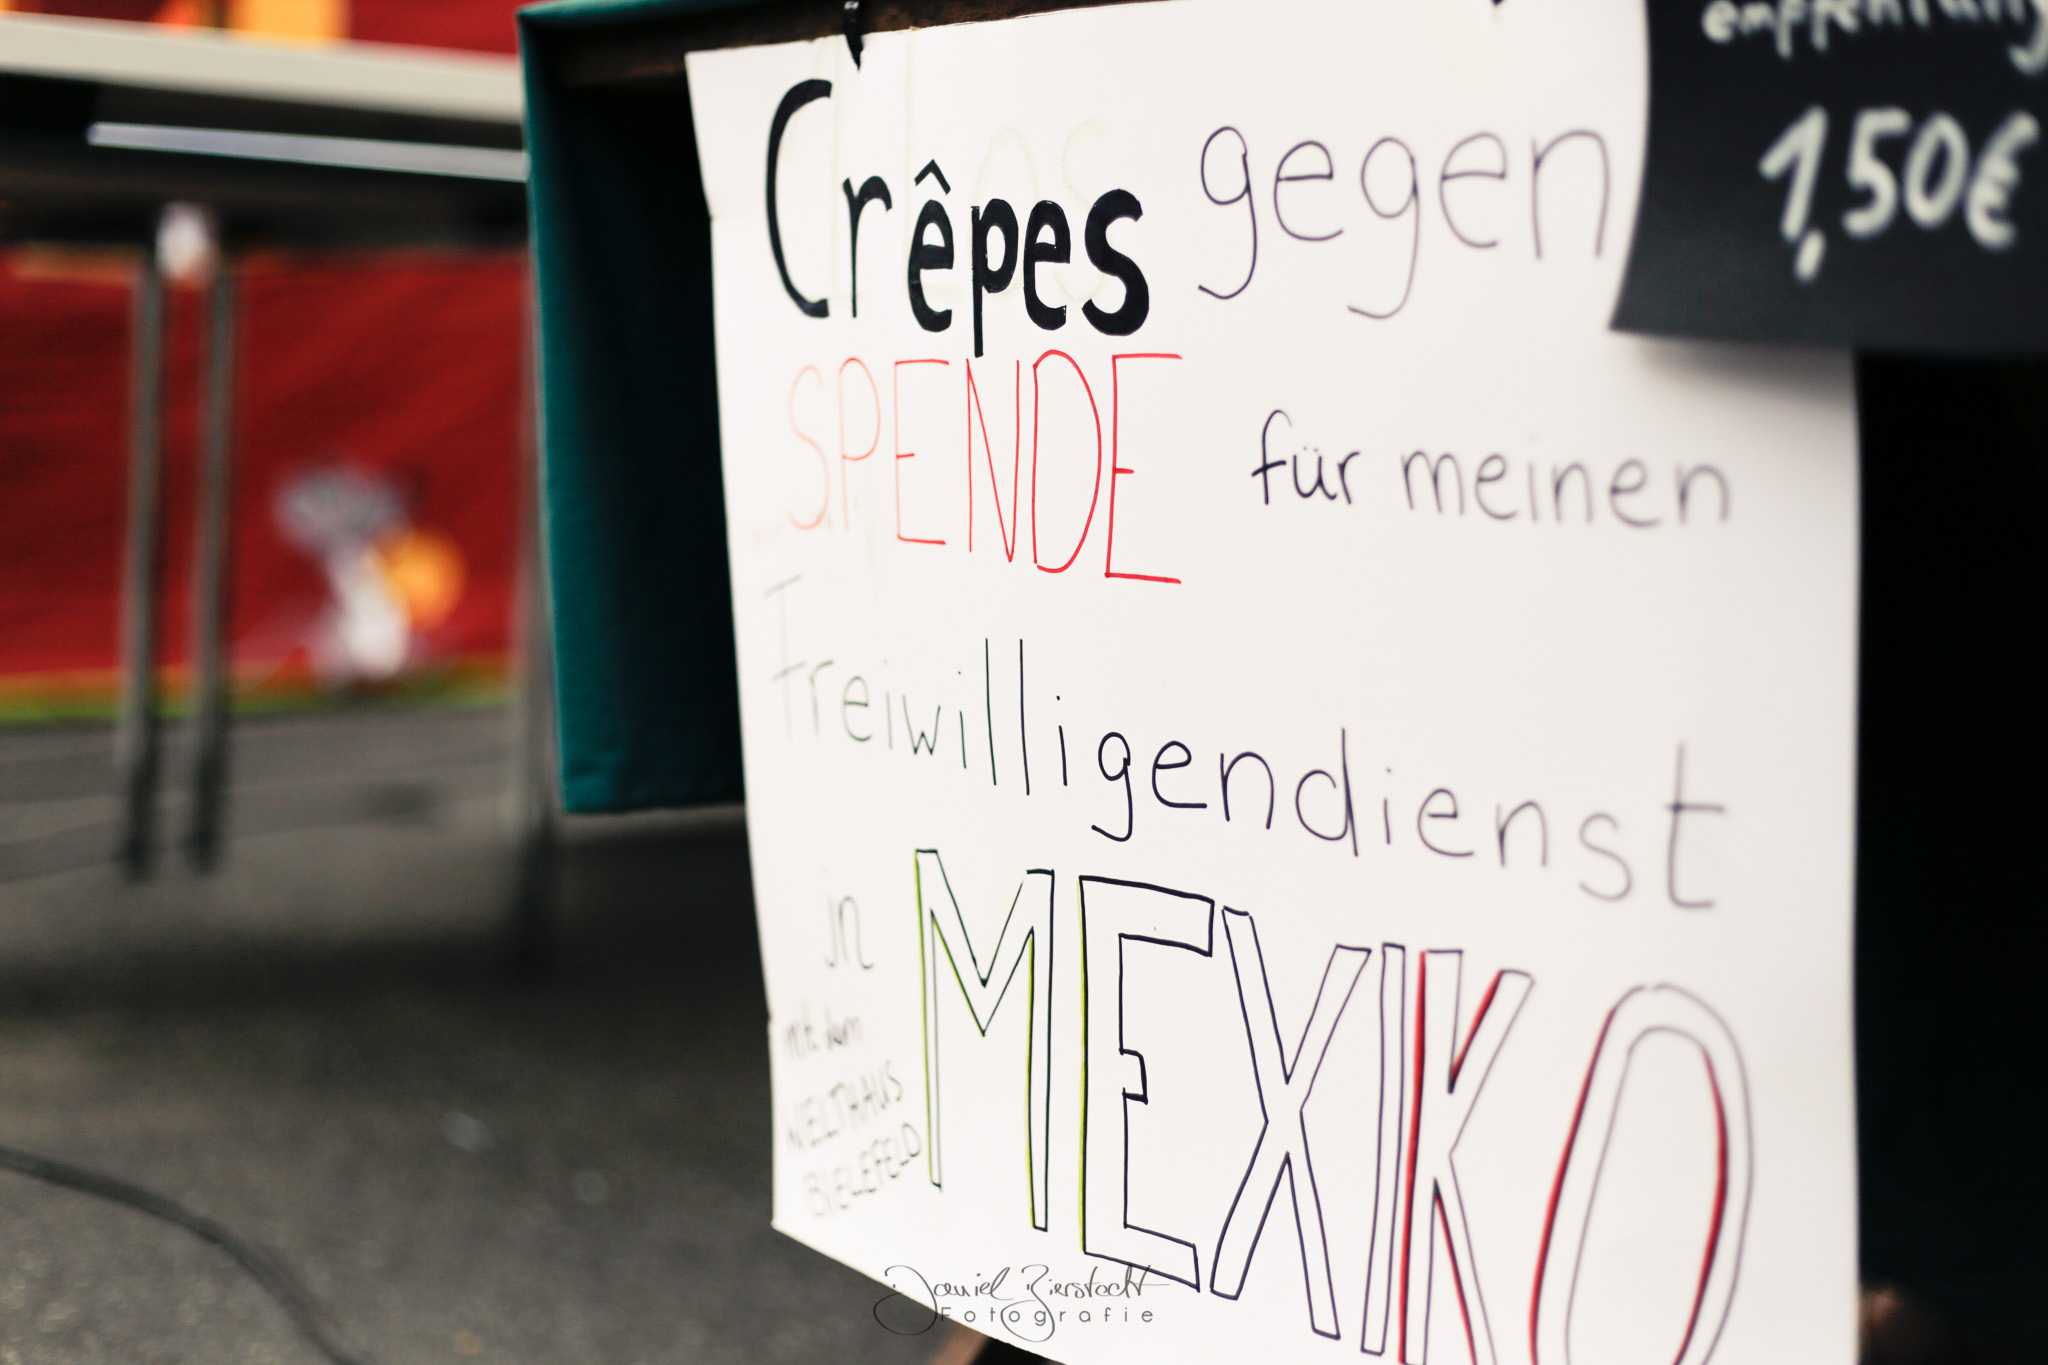 Crêpes gegen
SPENDE für meinen
Freiwilligendienst
in MEXIKO
mit dem
WELTHAUS
BIELEFELD
1,50€
Daniel Bierstedt
Fotografie